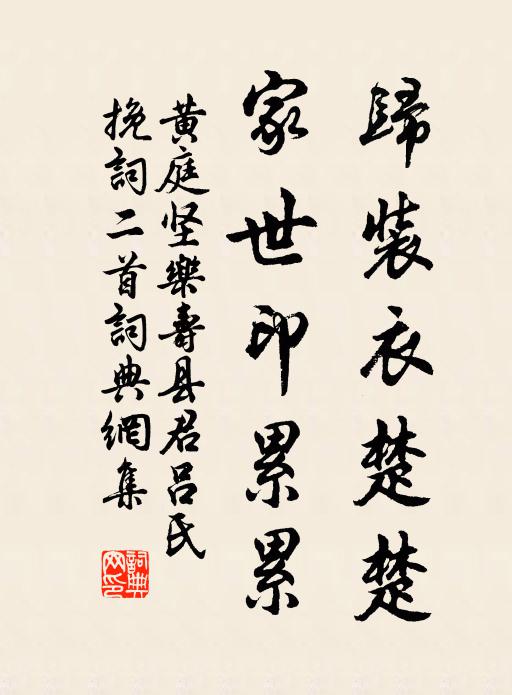 歸裝衣楚楚
家世印累累
黄庭坚樂壽县君吕氏
挽詞二首詞典網集
詞典網印